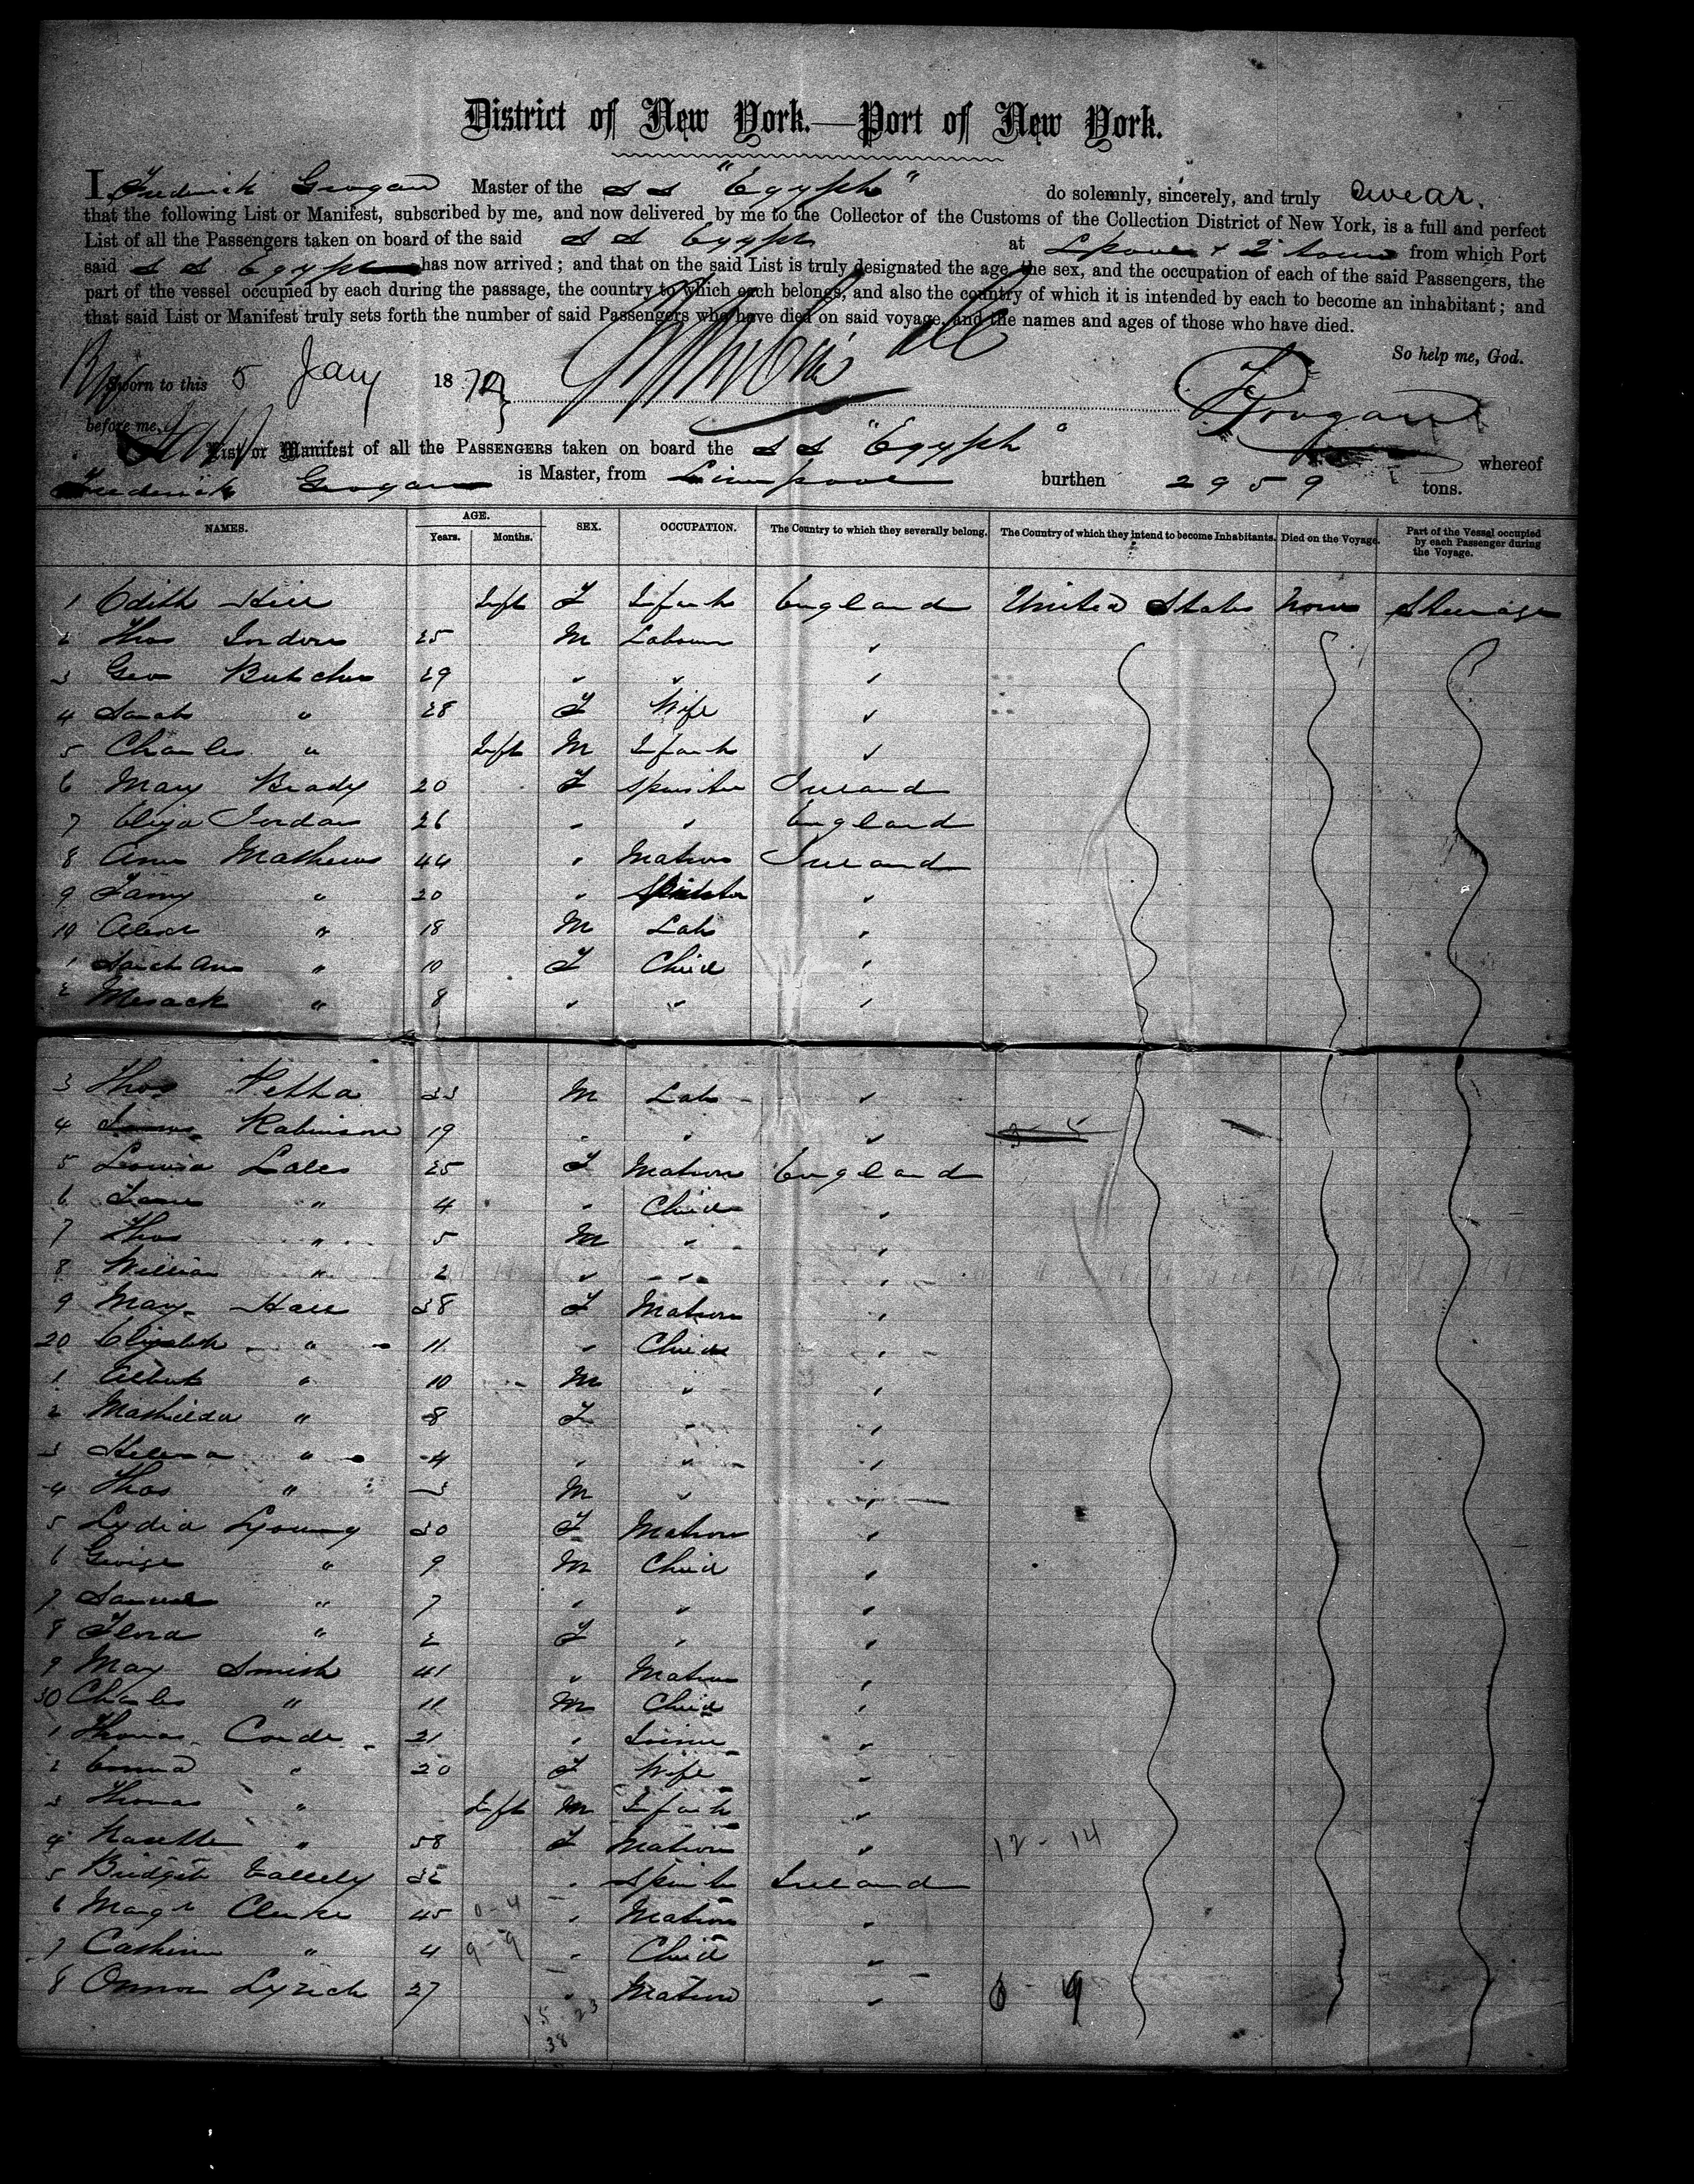 District of New York.—Port of New York.
I, Frederick Grogan Master of the S S "Egypt" do solemnly, sincerely, and truly swear,
that the following List or Manifest, subscribed by me, and now delivered by me to the Collector of the Customs of the Collection District of New York, is a full and perfect
List of all the Passengers taken on board of the said S S Egypt at Lpool & Q'town from which Port
said S S Egypt has now arrived; and that on the said List is truly designated the age, the sex, and the occupation of each of the said Passengers, the
part of the vessel occupied by each during the passage, the country to which each belongs, and also the country of which it is intended by each to become an inhabitant; and
that said List or Manifest truly sets forth the number of said Passengers who have died on said voyage, and the names and ages of those who have died.
So help me, God.
Sworn to this 5 Jany 18
before me, F Grogan
List or Manifest of all the PASSENGERS taken on board the S S "Egypt" whereof
Frederick Grogan is Master, from Liverpool burthen 2959 tons.
NAMES. AGE. Years. Months. SEX. OCCUPATION. The Country to which they severally belong. The Country of which they intend to become Inhabitants. Died on the Voyage. Part of the Vessel occupied by each Passenger during the Voyage.
1 Edith Hill Inft F Infant England United States None Steerage
2 Thos 25 M Labourer "
3 Geo Butcher 29 " " "
4 Sarah " 28 F Wife "
5 Charles " Inft M Infant "
6 Mary Brady 20 F Spinster Ireland
7 Eliza Jordan 26 " " England
8 Ann Mathews 44 " Matron Ireland
9 Fanny " 20 " Spinster "
10 Alexr " 18 M Lab "
1 Sarah Ann " 10 F Child "
2 Mesack " 8 " " "
3 Thos 33 M Lab "
4 James Robinson 19 " " "
5 Louisa Lales 25 F Matron England
6 Jane " 4 " Child "
7 Thos " 5 M " "
8 William " 2 " " "
9 Mary Hall 38 F Matron "
20 Elizabeth " 11 " Child "
1 Albert " 10 M " "
2 Mathilda " 8 F " "
3 Helena " 4 " " "
4 Thos " 3 M " "
5 Lydia Lyoung 30 F Matron "
6 George " 9 M Child "
7 Samuel " 7 " " "
8 Flora " 2 F " "
9 Mary Smith 41 " Matron "
30 Charles " 11 M Child "
1 Thomas Conde 21 " Joiner "
2 Emma " 20 F Wife "
3 Thomas " Inft M Infant "
4 " 58 F Matron " 12 - 14
5 Bridget 32 " Spinster Ireland
6 Margt Clarke 45 0-4 " Matron "
7 Catherine " 4 9-9 " Child "
8 Lynch 27 " Matron " 6 - 9
15 23
38